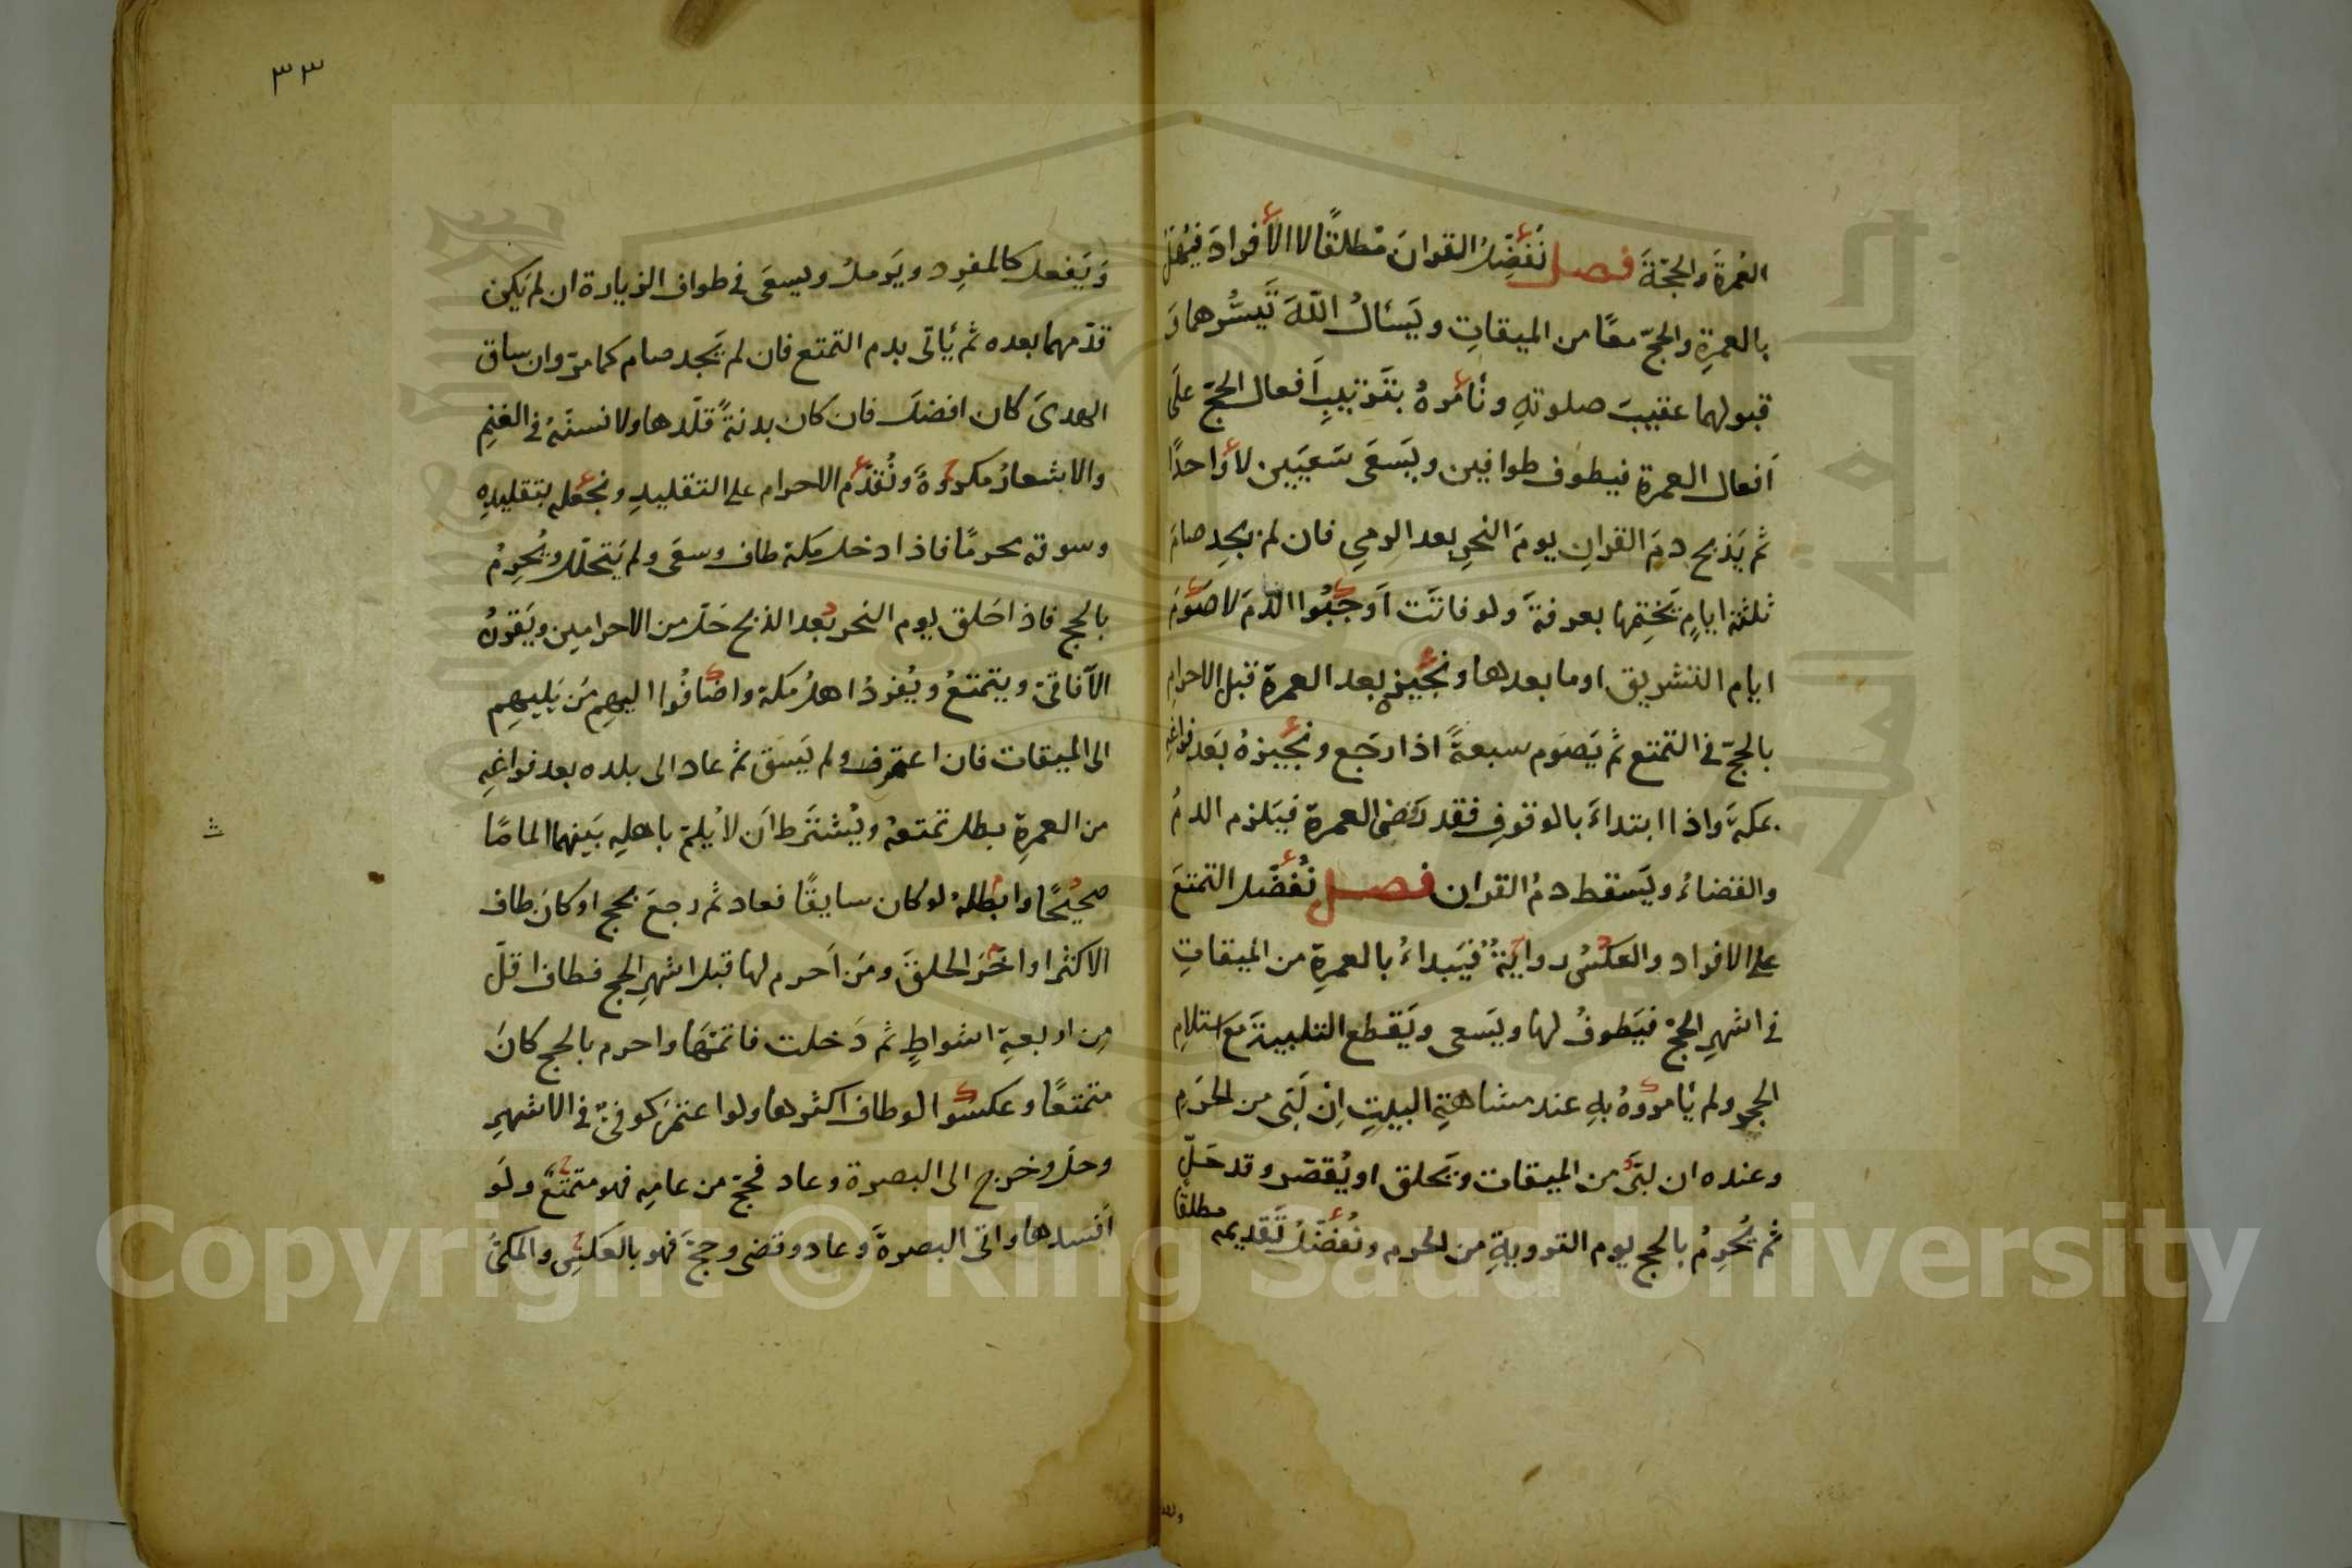 العُمرَةَ والحجّةَ فصل نُفَضِّلُ القرانَ مُطلقًا لا الأفرادَ فيُهِلّ
بالعمرةِ والحجّ معًا من الميقاتِ ويَسئالُ اللّٰهَ تَيَسُّرهما وَ
قبولهما عقيبَ صلوتهِ ونَأمُرهُ بتَرتيبِ اَفعال الحجّ علَى
اَفعال العمرةِ فيطوف طوافين ويَسعَى سَعيَيين لا واحدًا
ثم يَذبح دمَ القرانِ يومَ النحرِ بعد الرمي فان لم يجِد صامَ
ثلثةَ ايامٍ يَختِمها بعرفةَ ولو فاتَت اَوجَبُوا الدمَ لا صَومَ
ايام التشريق او ما بعدها ونجُيزه بعد العمرة قبل الاحرامِ
بالحجّ في التمتع ثم يَصوم سبعةً اذا رجَع ونجُيزهُ بَعد فراغهِ
بمكةَ واذا ابتداءَ بالوقوفِ فقد رَفضَ العمرة فيَلزم الدمُ
والقضاءُ ويَسقط دمُ القران فصل نُفَضّل التمتعَ
على الافراد والعَكسُ روايةٌ فيَبداءُ بالعمرةِ من الميقاتِ
في اشهرِ الحجّ فيَطوفُ لها ويَسعى ويَقطع التلبيةَ مع استلامِ
الحجر ولم يأمروهُ بهِ عند مشاهدةِ البيتِ اِن لَبّى من الحَرَمِ
وعنده ان لبّى من الميقات ويَحلق او يُقصّر وقد حَلّ
ثم يُحرِمُ بالحج يوم الترويةِ من الحرم ونُفضّلُ تَقديمه مطلقًا
٣٣
وَيَفعل كالمفرِد ويَرملُ ويسعَى في طواف الزيارة ان لم يَكن
قدّمهما بعده ثم يَأتى بدم التمتع فان لم يَجد صام كما مرّ وان ساق
الهدىَ كان افضلَ فان كان بدنةً قلّدها ولا نسنّهُ في الغنمِ
والاشعارُ مكروهَ ونُقدّم الاحرام على التقليدِ ونجعَله بتقليدِه
وسوقه محرمًا فاذا دخل مكة طاف وسعَى ولم يَتحلّل ويُحرِمُ
بالحج فاذا حَلق يوم النحر بُعد الذبح حَلّ من الاحرامين ويَقرنُ
الآفاقىّ ويتمتعُ ويُفردُ اهلُ مكة واضافُوا اليهِم مَن يَليهِم
الى الميقات فان اعتمر ولم يَسق ثم عاد الى بلده بعد فراغِهِ
من العمرةِ بطل تمتعهُ ويُشتَرط اَن لا يُلمّ باهلهِ بَينهما المامًا
صحيحًا وابطلهُ لو كان سايقًا فعاد ثم رجعَ بحج او كانَ طاف
الاكثر او اخّر الحلقَ ومَن اَحرم لها قبل اشهرِ الحج فطاف اقلّ
مِن اربعةِ اشواطٍ ثم دَخلت فاتمّهَا واحرم بالحج كانَ
متمتعًا وعكسُوا لو طاف اكثرها ولو اعتمَرَ كوفىٌّ في الاشهرِ
وحلّ وخرج الى البصرة وعاد فحجّ من عامِهِ فهو متمتعٌ ولَو
اَفسدها واتى البصرةَ وعاد وقضى وحجّ فهو بالعَكسِ والمكىّ